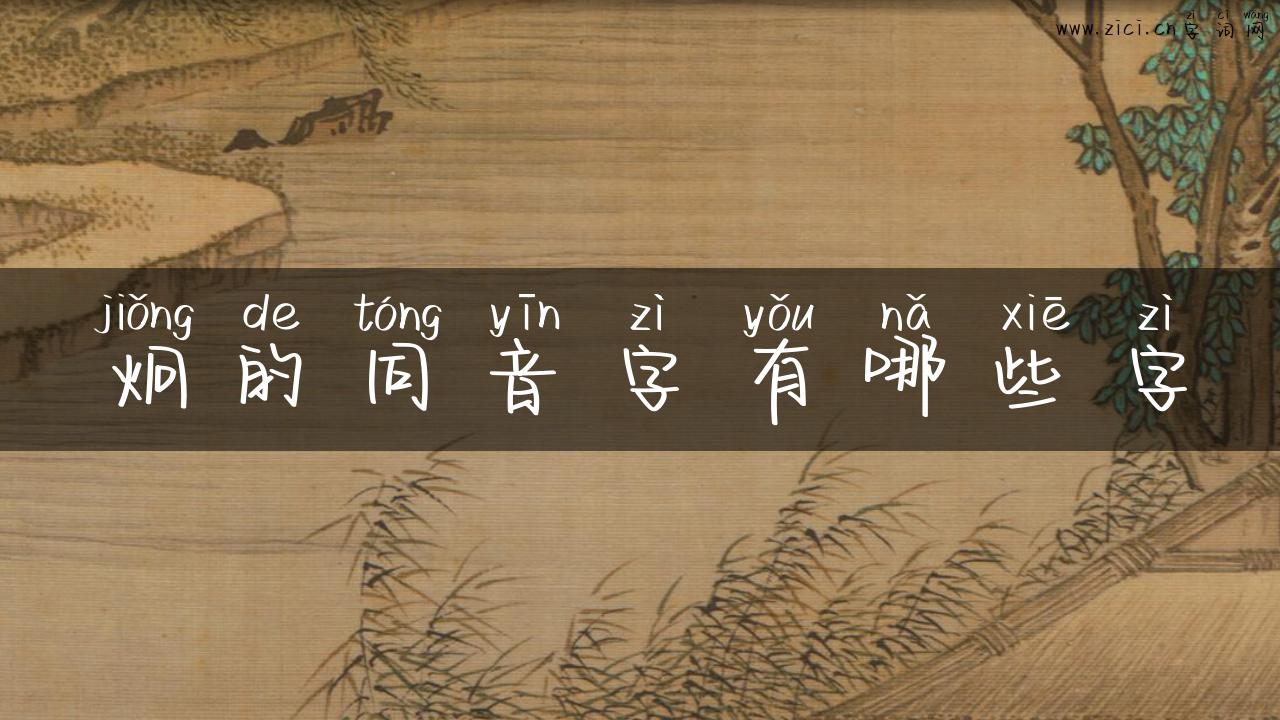 zì cí wǎng
www.zici.cn 字词网
jiǒng de tóng yīn zì yǒu nǎ xiē zì
炯的同音字有哪些字